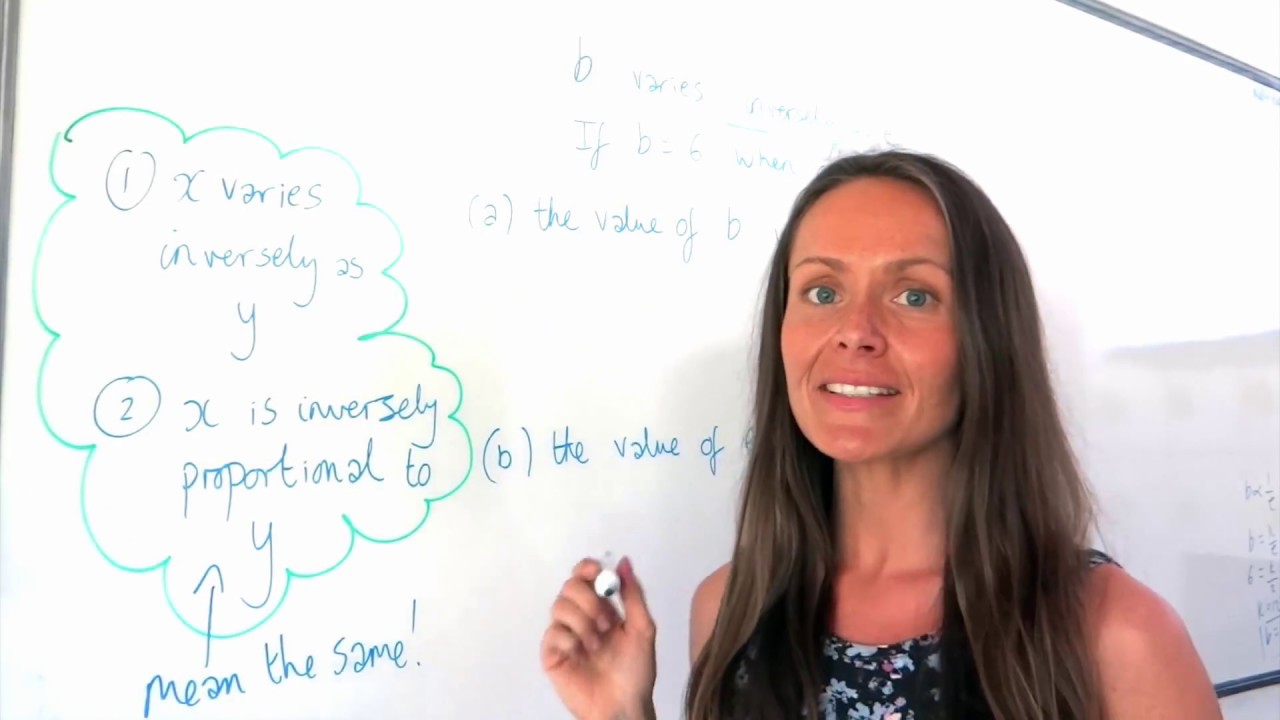 ① x varies
inversely as
y
② x is inversely
proportional to
y
mean the same!
b varies inversely
If b = 6 when
(a) the value of b
(b) the value of
b ∝ 1
b = k
6 = k